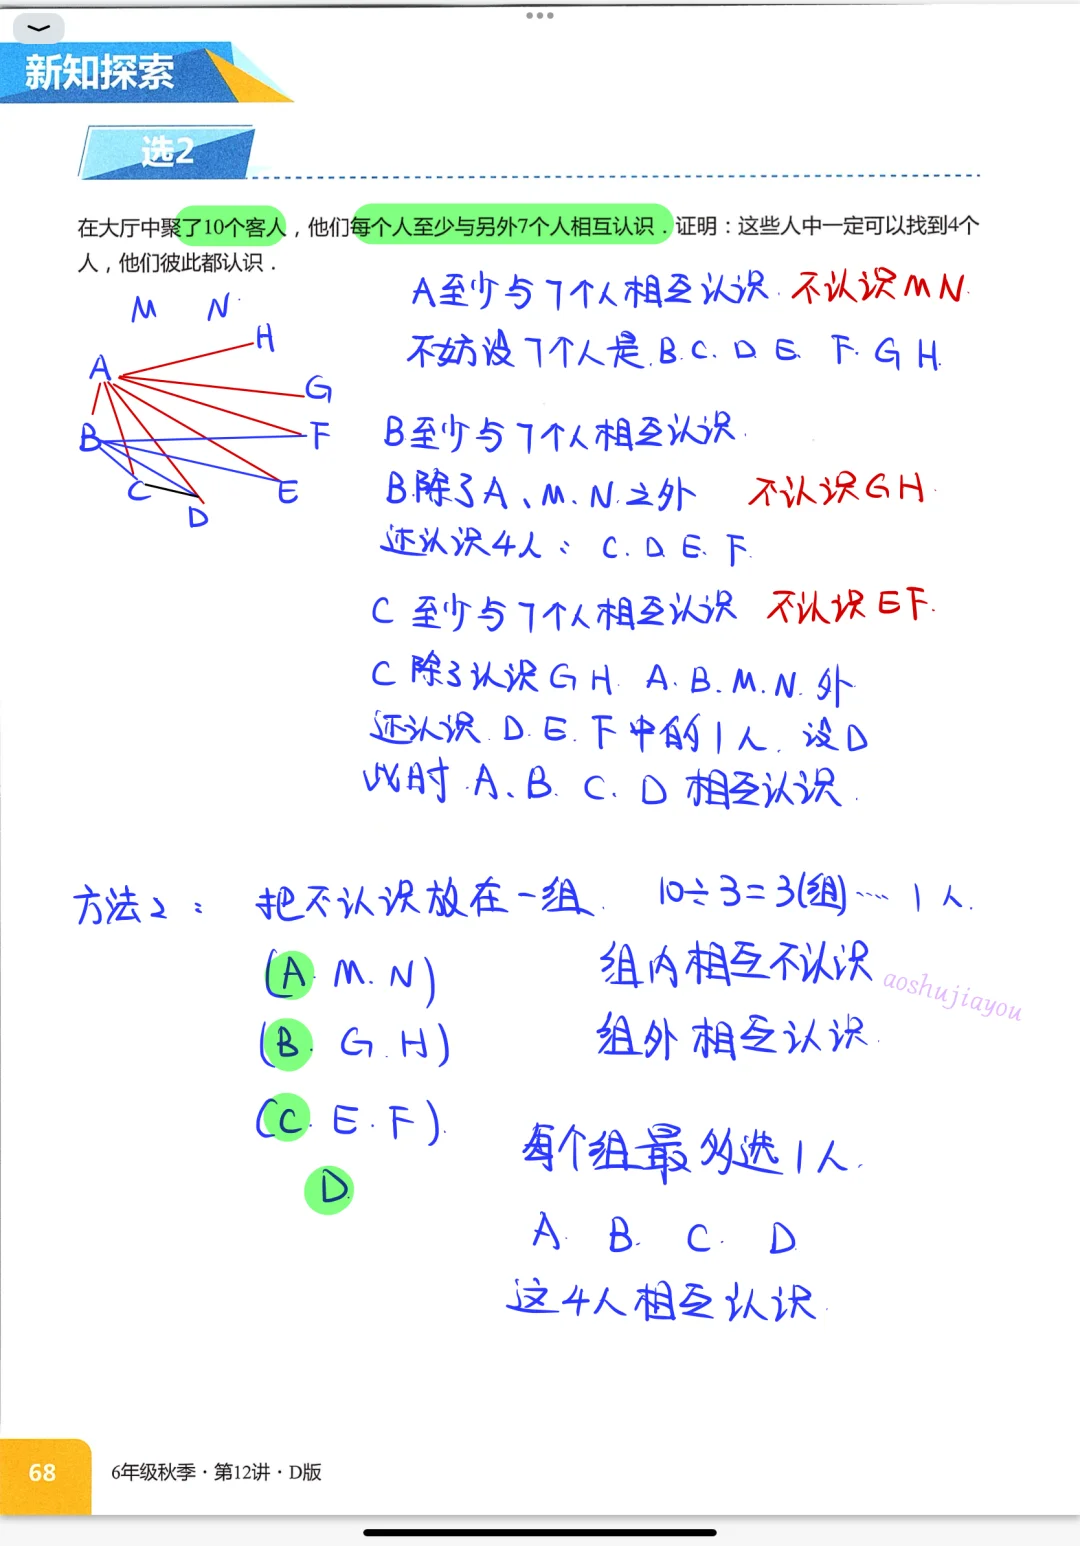 新知探索
选2
在大厅中聚了10个客人，他们每个人至少与另外7个人相互认识．证明：这些人中一定可以找到4个
人，他们彼此都认识．
M N
A至少与7个人相互认识. 不认识MN.
H
不妨设7个人是.B.C.D.E. F.G H.
A
G
B至少与7个人相互认识.
B
F
B.除了A、M.N.之外 不认识GH.
C
E
D
还认识4人： C.D.E.F.
C 至少与7个人相互认识 不认识EF.
C 除了认识GH. A.B.M.N.外
还认识.D.E.F中的1人. 设D
此时.A、B.C.D相互认识.
方法2： 把不认识放在一组. 10÷3=3(组)…1人.
(A.M.N) 组内相互不认识
aoshujiayou
(B.G.H) 组外相互认识.
(C.E.F).
每个组最多选1人.
D.
A. B. C. D.
这4人相互认识.
68
6年级秋季·第12讲·D版